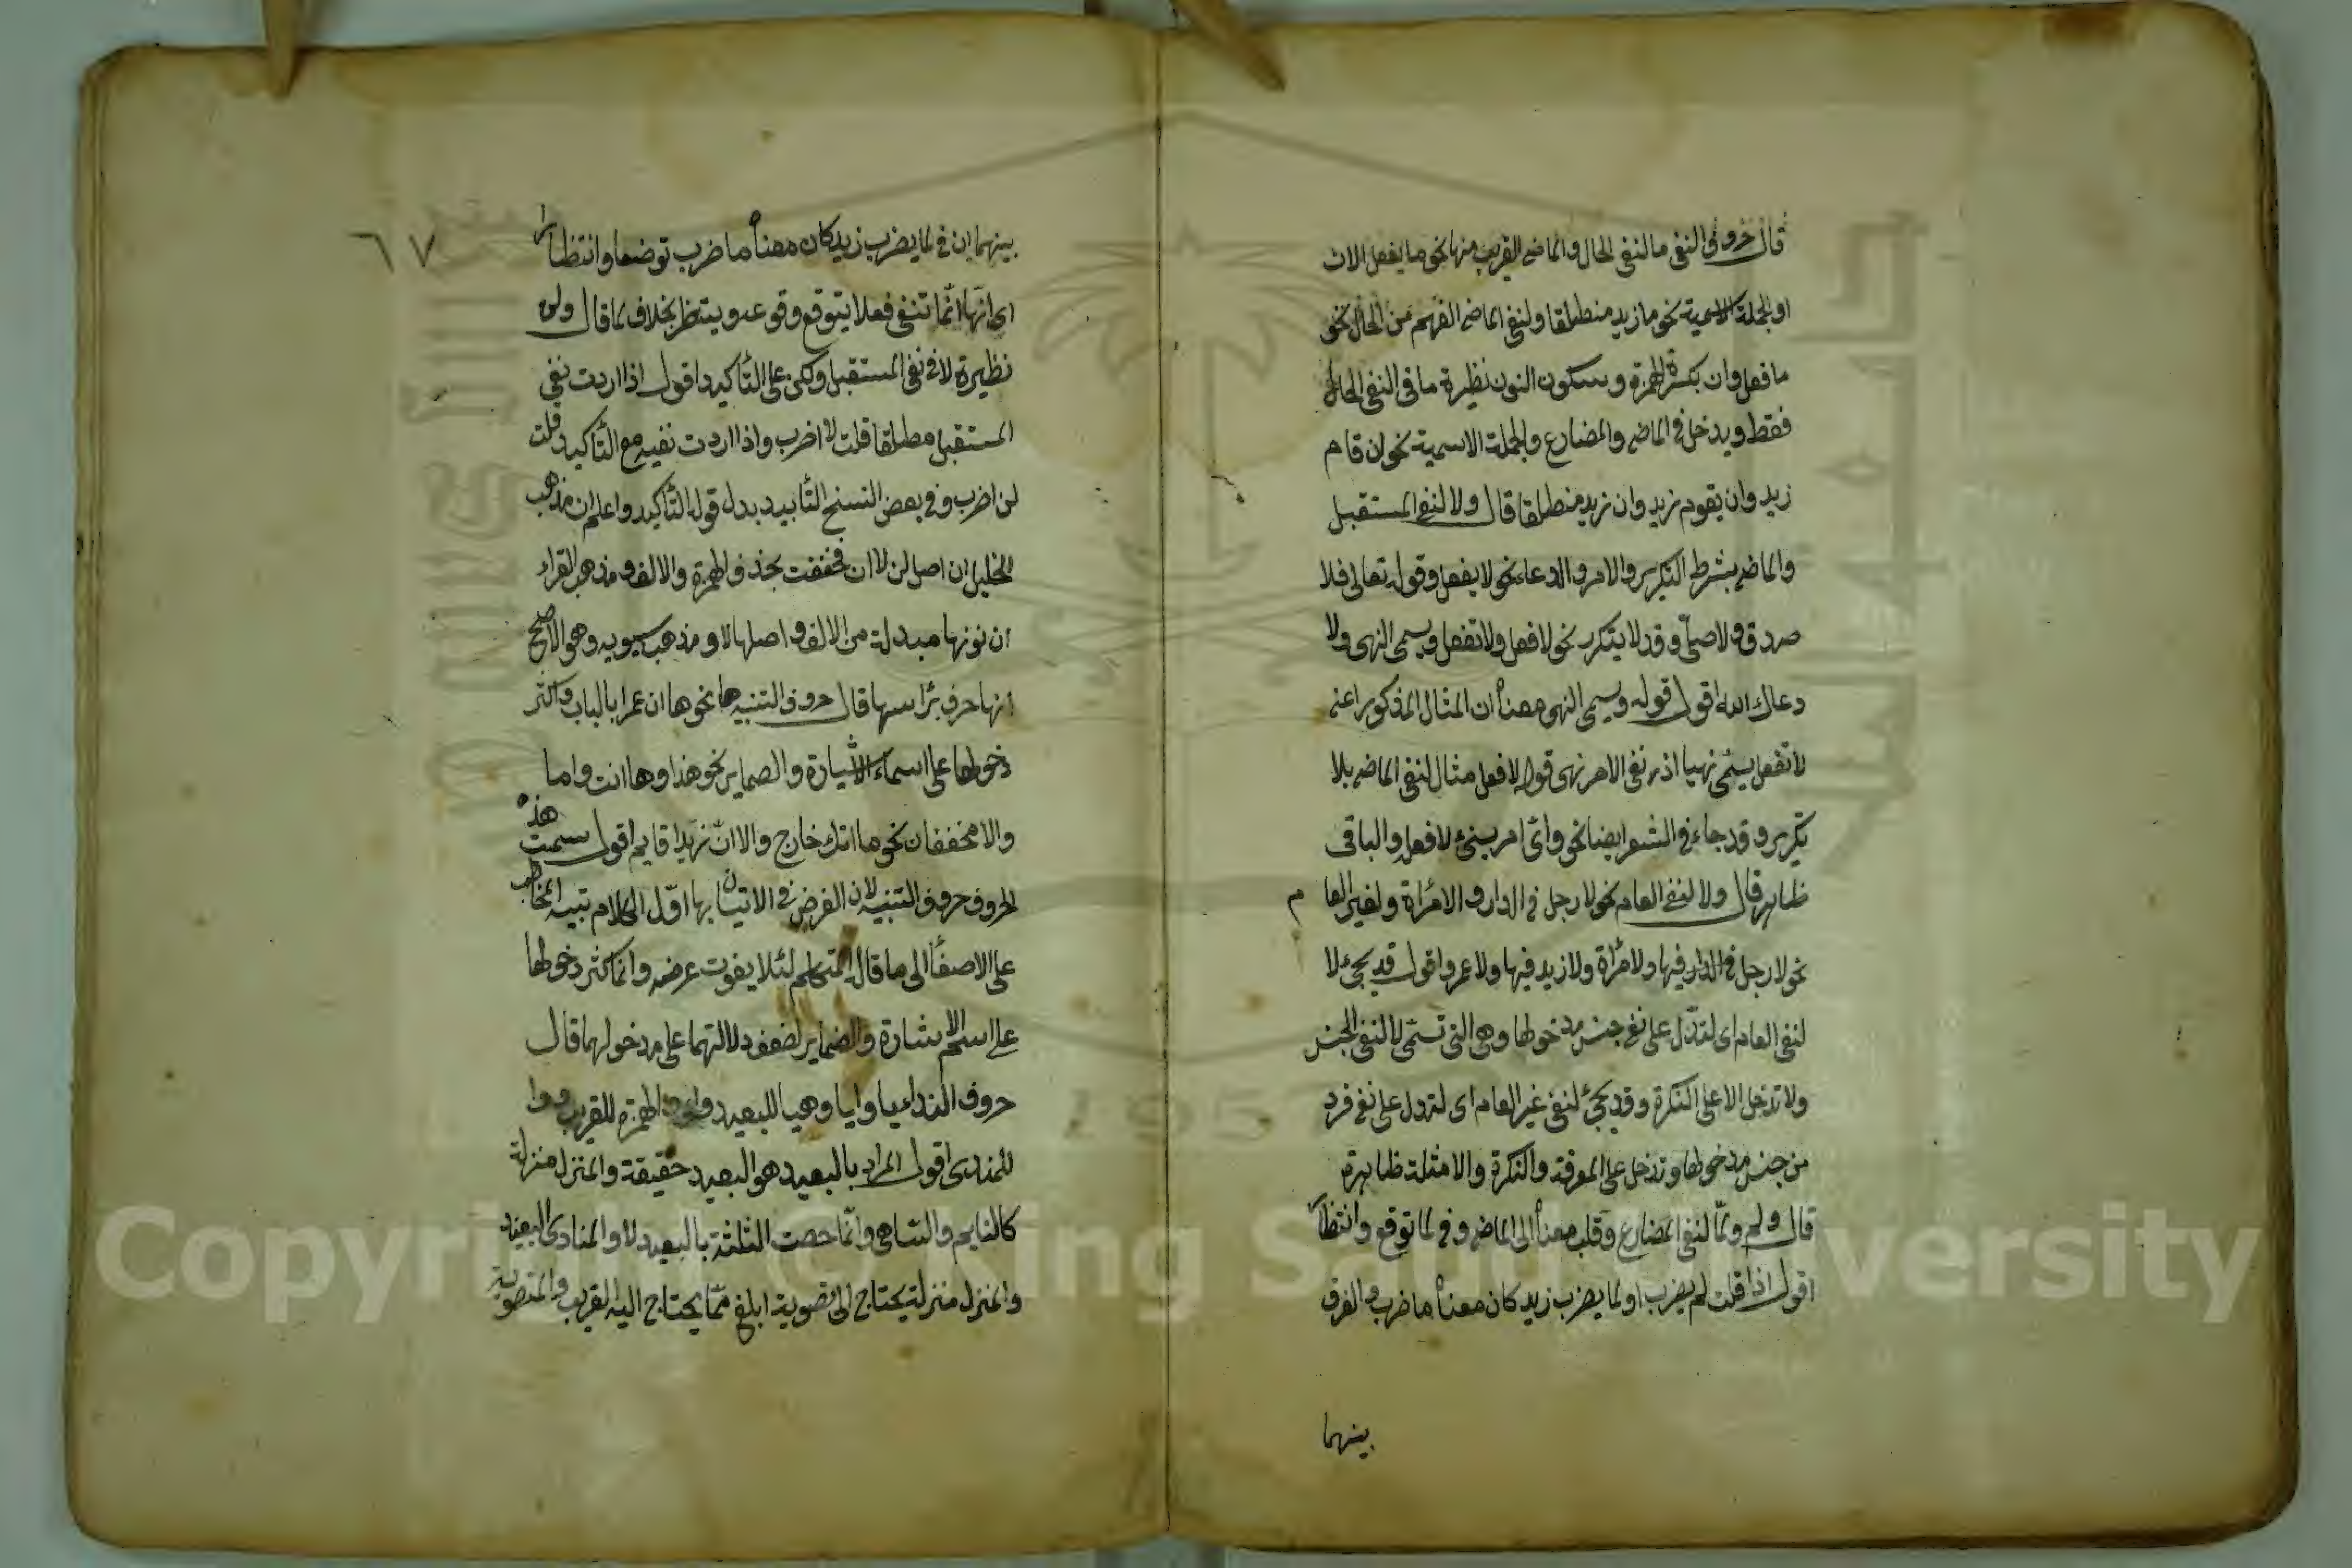 قال حروف النفى ما لنفى الحال والماضى القريب منها نحو ما يفعل الان
او الجملة الاسمية نحو ما زيد منطلقا ولنفى الماضى القريب من الحال نحو
ما فعل وان بكسرة الهمزة وسكون النون نظيرة ما فى النفى الحال
فقط ويدخل فى الماضى والمضارع والجملة الاسمية نحو ان قام
زيد وان يقوم زيد وان زيد منطلقا قال ولا لنفى المستقبل
والماضى بشرط التكرير والامر والدعاء نحو لا يفعل وقوله تعالى فلا
صدق ولا صلى وقد لا يتكرر نحو لا فعل ولا تفعل ويسمى النهى ولا
دعاك الله اقول قوله ويسمى النهى معناه ان المثال المذكور اعنى
لا تفعل يسمى نهيا اذ نفى الامر نهى قوله لا فعل مثال لنفى الماضى بلا
تكرير وقد جاء فى الشعر ايضا نحو واى امر سيئ لا فعله والباقى
ظاهر قال ولا لنفى العام نحو لا رجل فى الدار ولا امرأة ولغير العام
نحو لا رجل فى الدار فيها ولا امرأة ولا زيد فيها ولا عمرو اقول قد يجئ لا
لنفى العام اى لتدل على نفى جنس مدخولها وهى التى تسمى لا لنفى الجنس
ولا تدخل الا على النكرة وقد يجئ لنفى غير العام اى لتدل على نفى فرد
من جنس مدخولها وتدخل على المعرفة والنكرة والامثلة ظاهرة
قال ولم ولما لنفى المضارع وقلب معناه الى الماضى وفى لما توقع وانتظار
اقول اذا قلت لم يضرب او لما يضرب زيد كان معناه ما ضرب والفرق
بينهما
٦٧
بينهما ان فى لما يضرب زيد كان معناه ما ضرب توقعا وانتظارا
اى انها انما تنفى فعلا يتوقع وقوعه وينتظر بخلاف لم قال ولن
نظيرة لا فى نفى المستقبل ولكن على التأكيد اقول اذا اردت نفى
المستقبل مطلقا قلت لا اضرب واذا اردت نفيه مع التأكيد قلت
لن اضرب وفى بعض النسخ التأبيد بدل قوله التأكيد واعلم ان مذهب
الخليل ان اصل لن لا ان فخففت بحذف الهمزة والالف ومذهب الفراء
ان نونها مبدلة من الالف واصلها لا ومذهب سيبويه وهو الاصح
انها حرف برأسها قال حروف التنبيه ها نحو ها ان عمرا بالباب واكثر
دخولها على اسماء الاشارة والضماير نحو هذا وها انت واما
والا مخففان نحو اما انك خارج والا ان زيدا قايم اقول سميت هذه
الحروف حروف التنبيه لان الغرض فى الاتيان بها اول الكلام تنبيه المخاطب
على الاصغاء الى ما قال المتكلم لئلا يفوت غرضه وانما كثر دخولها
على اسم الاشارة والضماير لضعف دلالتهما على مدخولهما قال
حروف النداء يا وايا وهيا للبعيد واى والهمزة للقريب ووا
للمندوب اقول المراد بالبعيد هو البعيد حقيقة والمنزل منزلة
كالنايم والساهى وانما خصت الثلثة بالبعيد لان المنادى البعيد
والمنزل منزلته يحتاج الى تصويت ابلغ مما يحتاج اليه القريب والتصويت